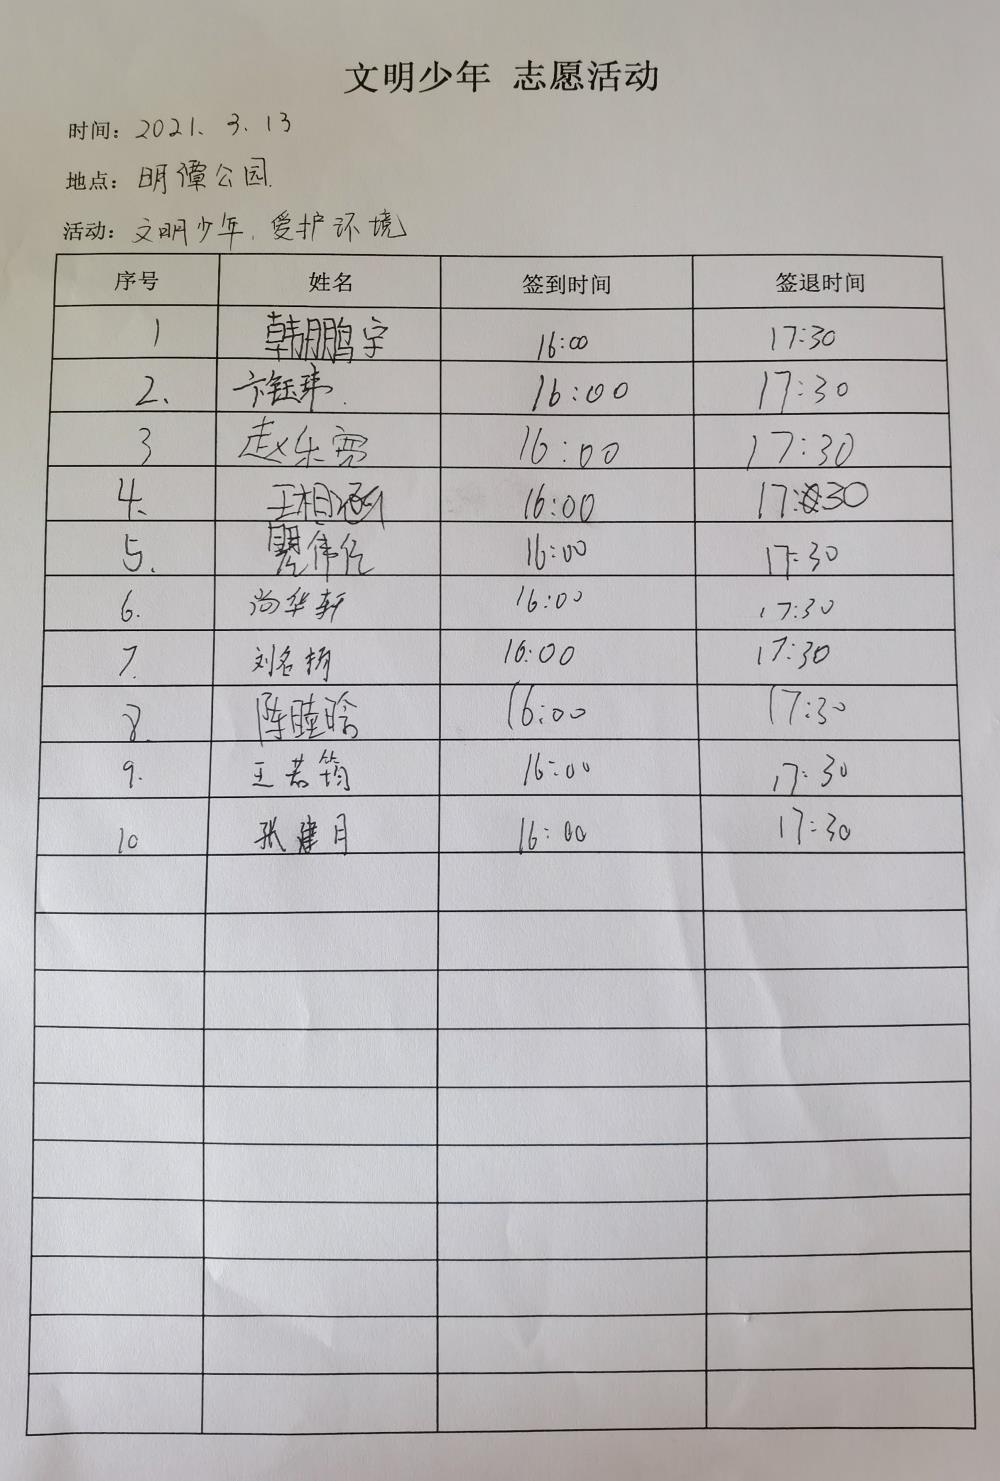 文明少年 志愿活动
时间：2021.3.13
地点：明潭公园.
活动：文明少年.爱护环境
序号 姓名 签到时间 签退时间
1 韩鹏宇 16:00 17:30
2. 卞钰玮. 16:00 17:30
3 赵乐宽 16:00 17:30
4. 王相涵 16:00 17:30
5. 伟亿 16:00 17:30
6. 尚华轩 16:00 17:30
7. 刘名扬 16:00 17:30
8. 陈睦晗 16:00 17:30
9. 王若筠 16:00 17:30
10 张建月 16:00 17:30